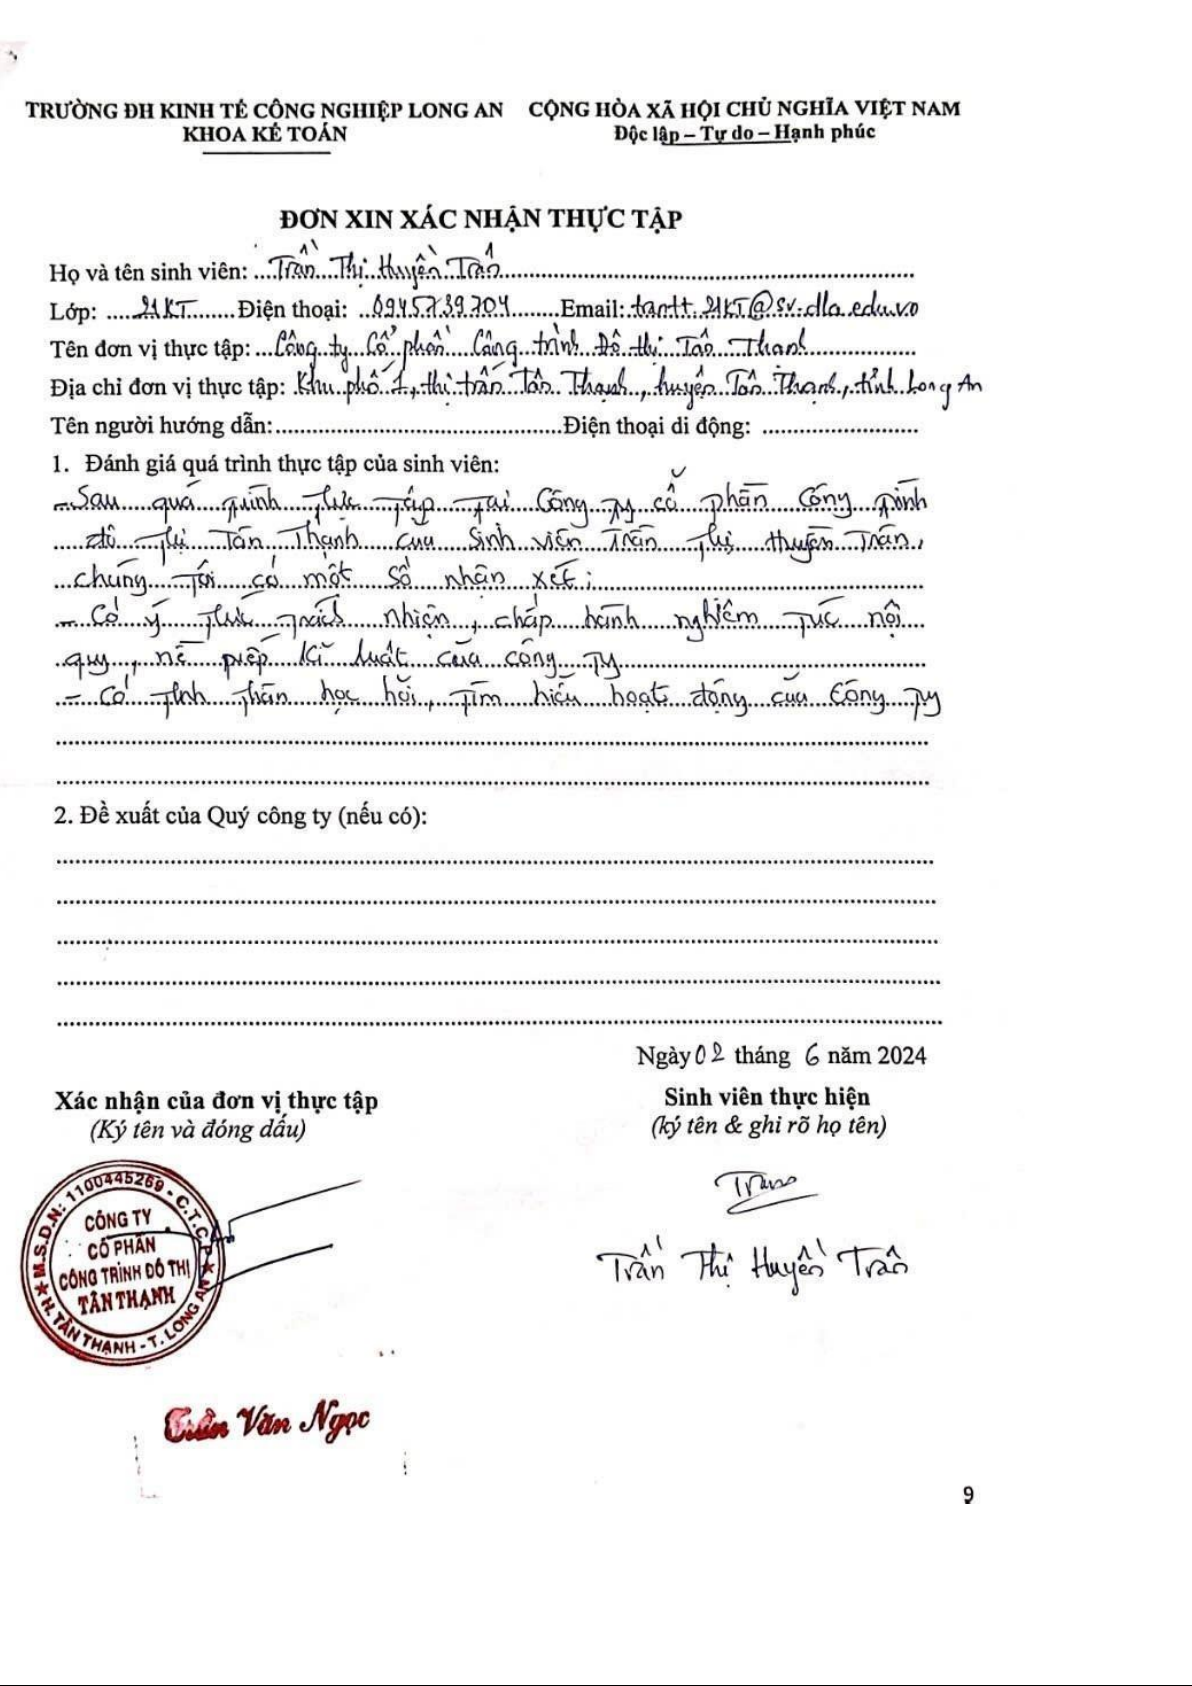 TRƯỜNG ĐH KINH TẾ CÔNG NGHIỆP LONG AN
KHOA KẾ TOÁN
CỘNG HÒA XÃ HỘI CHỦ NGHĨA VIỆT NAM
Độc lập – Tự do – Hạnh phúc
ĐƠN XIN XÁC NHẬN THỰC TẬP
Họ và tên sinh viên: Trần Thị Huyền Trân
Lớp: 21KT Điện thoại: 0945739704 Email: tantt.21KT@sv.dla.edu.vn
Tên đơn vị thực tập: Công ty Cổ phần Công trình Đô thị Tân Thạnh
Địa chỉ đơn vị thực tập: Khu phố 1, thị trấn Tân Thạnh, huyện Tân Thạnh, tỉnh Long An
Tên người hướng dẫn: Điện thoại di động:
1. Đánh giá quá trình thực tập của sinh viên:
- Sau quá trình thực tập tại Công ty cổ phần Công trình
đô thị Tân Thạnh của sinh viên Trần Thị Huyền Trân,
chúng tôi có một số nhận xét:
- Có ý thức trách nhiệm, chấp hành nghiêm túc nội
quy, nề nếp kĩ luật của công ty
- Có tinh thần học hỏi, tìm hiểu hoạt động của Công ty
2. Đề xuất của Quý công ty (nếu có):
Ngày 02 tháng 6 năm 2024
Xác nhận của đơn vị thực tập
(Ký tên và đóng dấu)
Sinh viên thực hiện
(ký tên & ghi rõ họ tên)
M.S.D.N: 1100445269 - C.T.C.P
CÔNG TY
CỔ PHẦN
CÔNG TRÌNH ĐÔ THỊ
TÂN THẠNH
H. TÂN THẠNH - T. LONG AN
Trân
Trần Thị Huyền Trân
Văn Ngọc
9